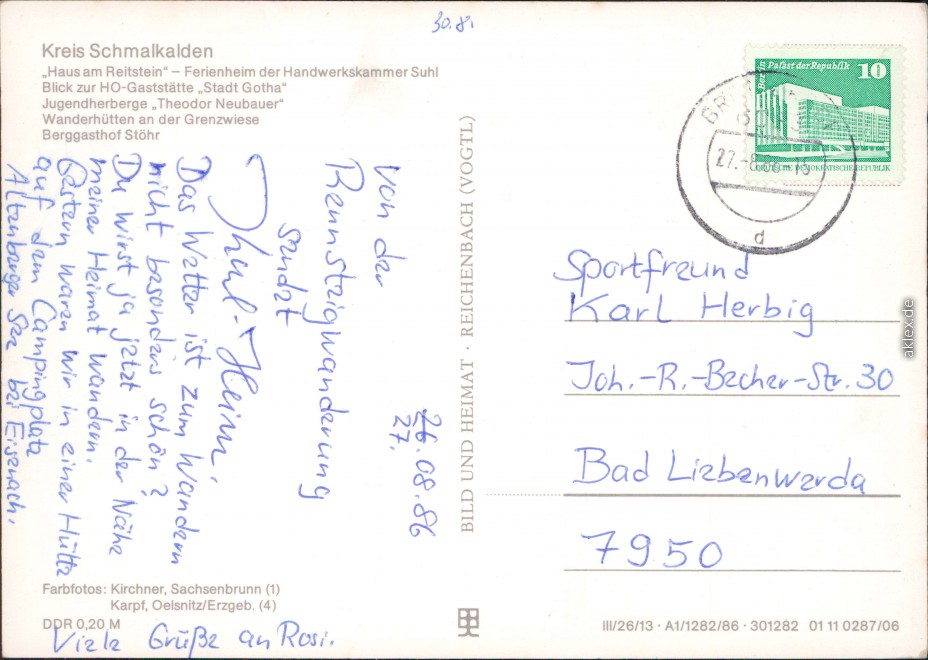 30.8.
Kreis Schmalkalden
„Haus am Reitstein“ – Ferienheim der Handwerkskammer Suhl
Blick zur HO-Gaststätte „Stadt Gotha“
Jugendherberge „Theodor Neubauer“
Wanderhütten an der Grenzwiese
Berggasthof Stöhr
26.08.86
27.
Von der
Rennsteigwanderung
sendet
Heim.
Das Wetter ist zum Wandern
nicht besonders schön?
Du wirst ja jetzt in der Nähe
meiner Heimat wandern.
Gestern waren wir in einer Hütte
auf dem Campingplatz
Altenberger See bei Eisenach.
Viele Grüße an Rosi.
Farbfotos: Kirchner, Sachsenbrunn (1)
Karpf, Oelsnitz/Erzgeb. (4)
DDR 0,20 M
BILD UND HEIMAT · REICHENBACH (VOGTL)
Berlin Palast der Republik 10
DEUTSCHE DEMOKRATISCHE REPUBLIK
27.-8.86-15
d
Sportfreund
Karl Herbig
Joh.-R.-Becher-Str. 30
Bad Liebenwerda
7950
III/26/13 · A1/1282/86 · 301282 01 11 0287/06
aklex.de